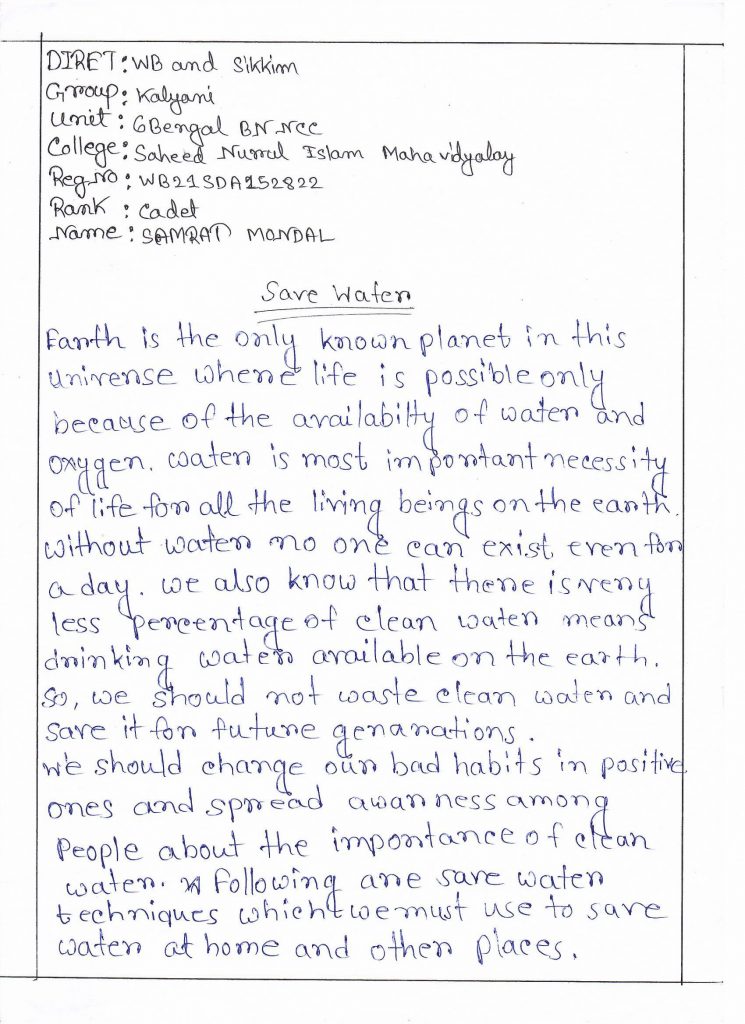 DIRET: WB and Sikkim
Group: Kalyani
Unit: 6 Bengal BN NCC
College: Saheed Nurul Islam Mahavidyalay
Reg.No: WB21SDA152822
Rank: Cadet
Name: SAMRAT MONDAL
Save Water
Earth is the only known planet in this
universe where life is possible only
because of the availabilty of water and
oxygen. water is most important necessity
of life for all the living beings on the earth.
without water no one can exist even for
a day. we also know that there is very
less percentage of clean water means
drinking water available on the earth.
So, we should not waste clean water and
save it for future genarations.
we should change our bad habits in positive
ones and spread awarness among
People about the importance of clean
water. Following are save water
techniques which we must use to save
water at home and other places.